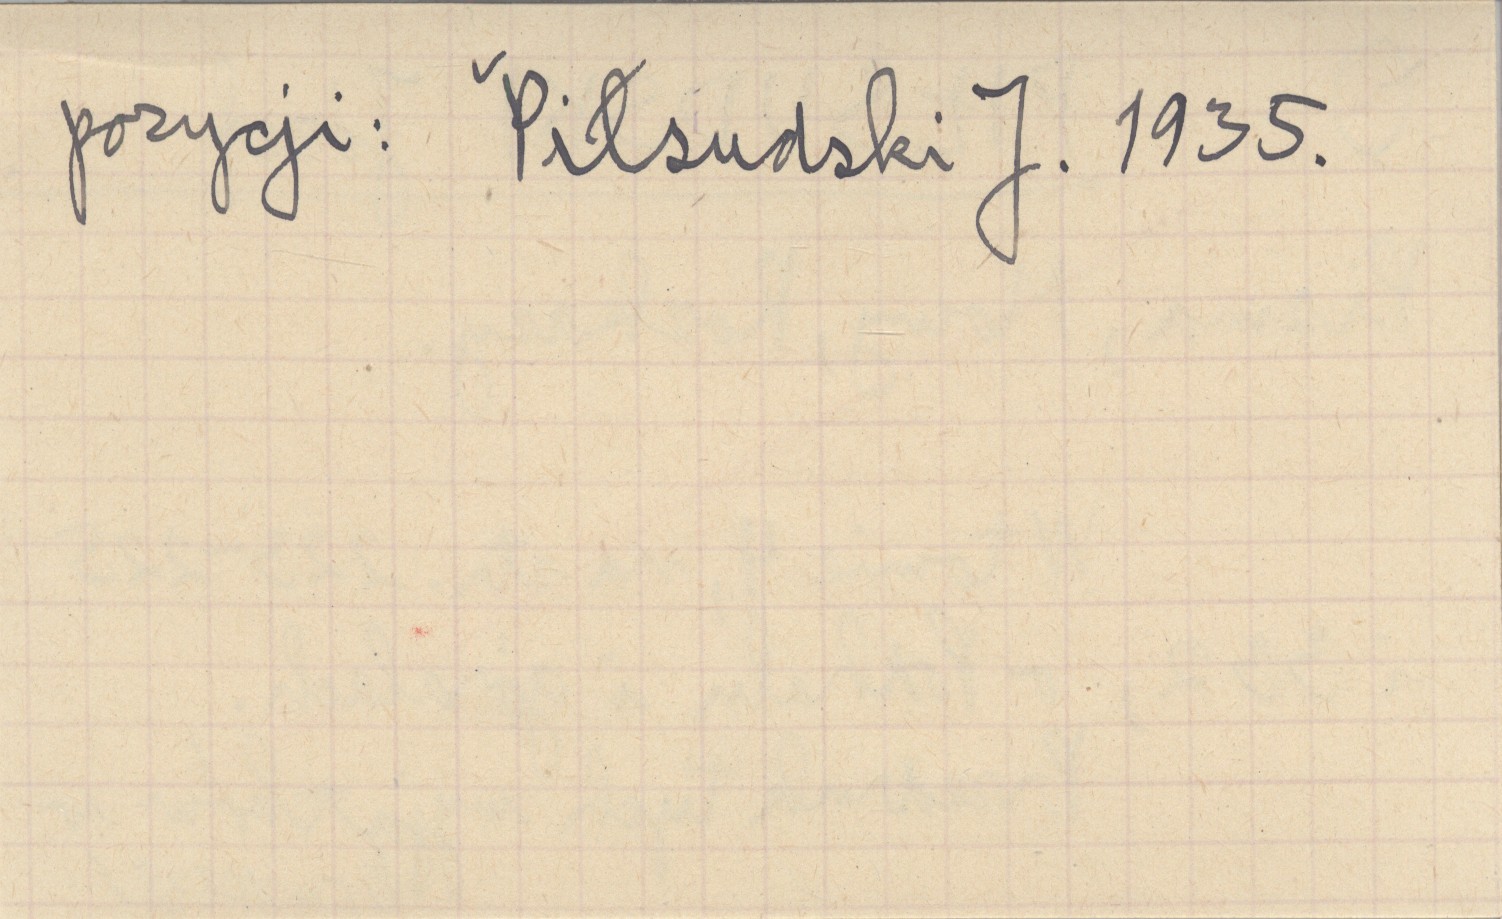 pozycji: Piłsudski J. 1935.